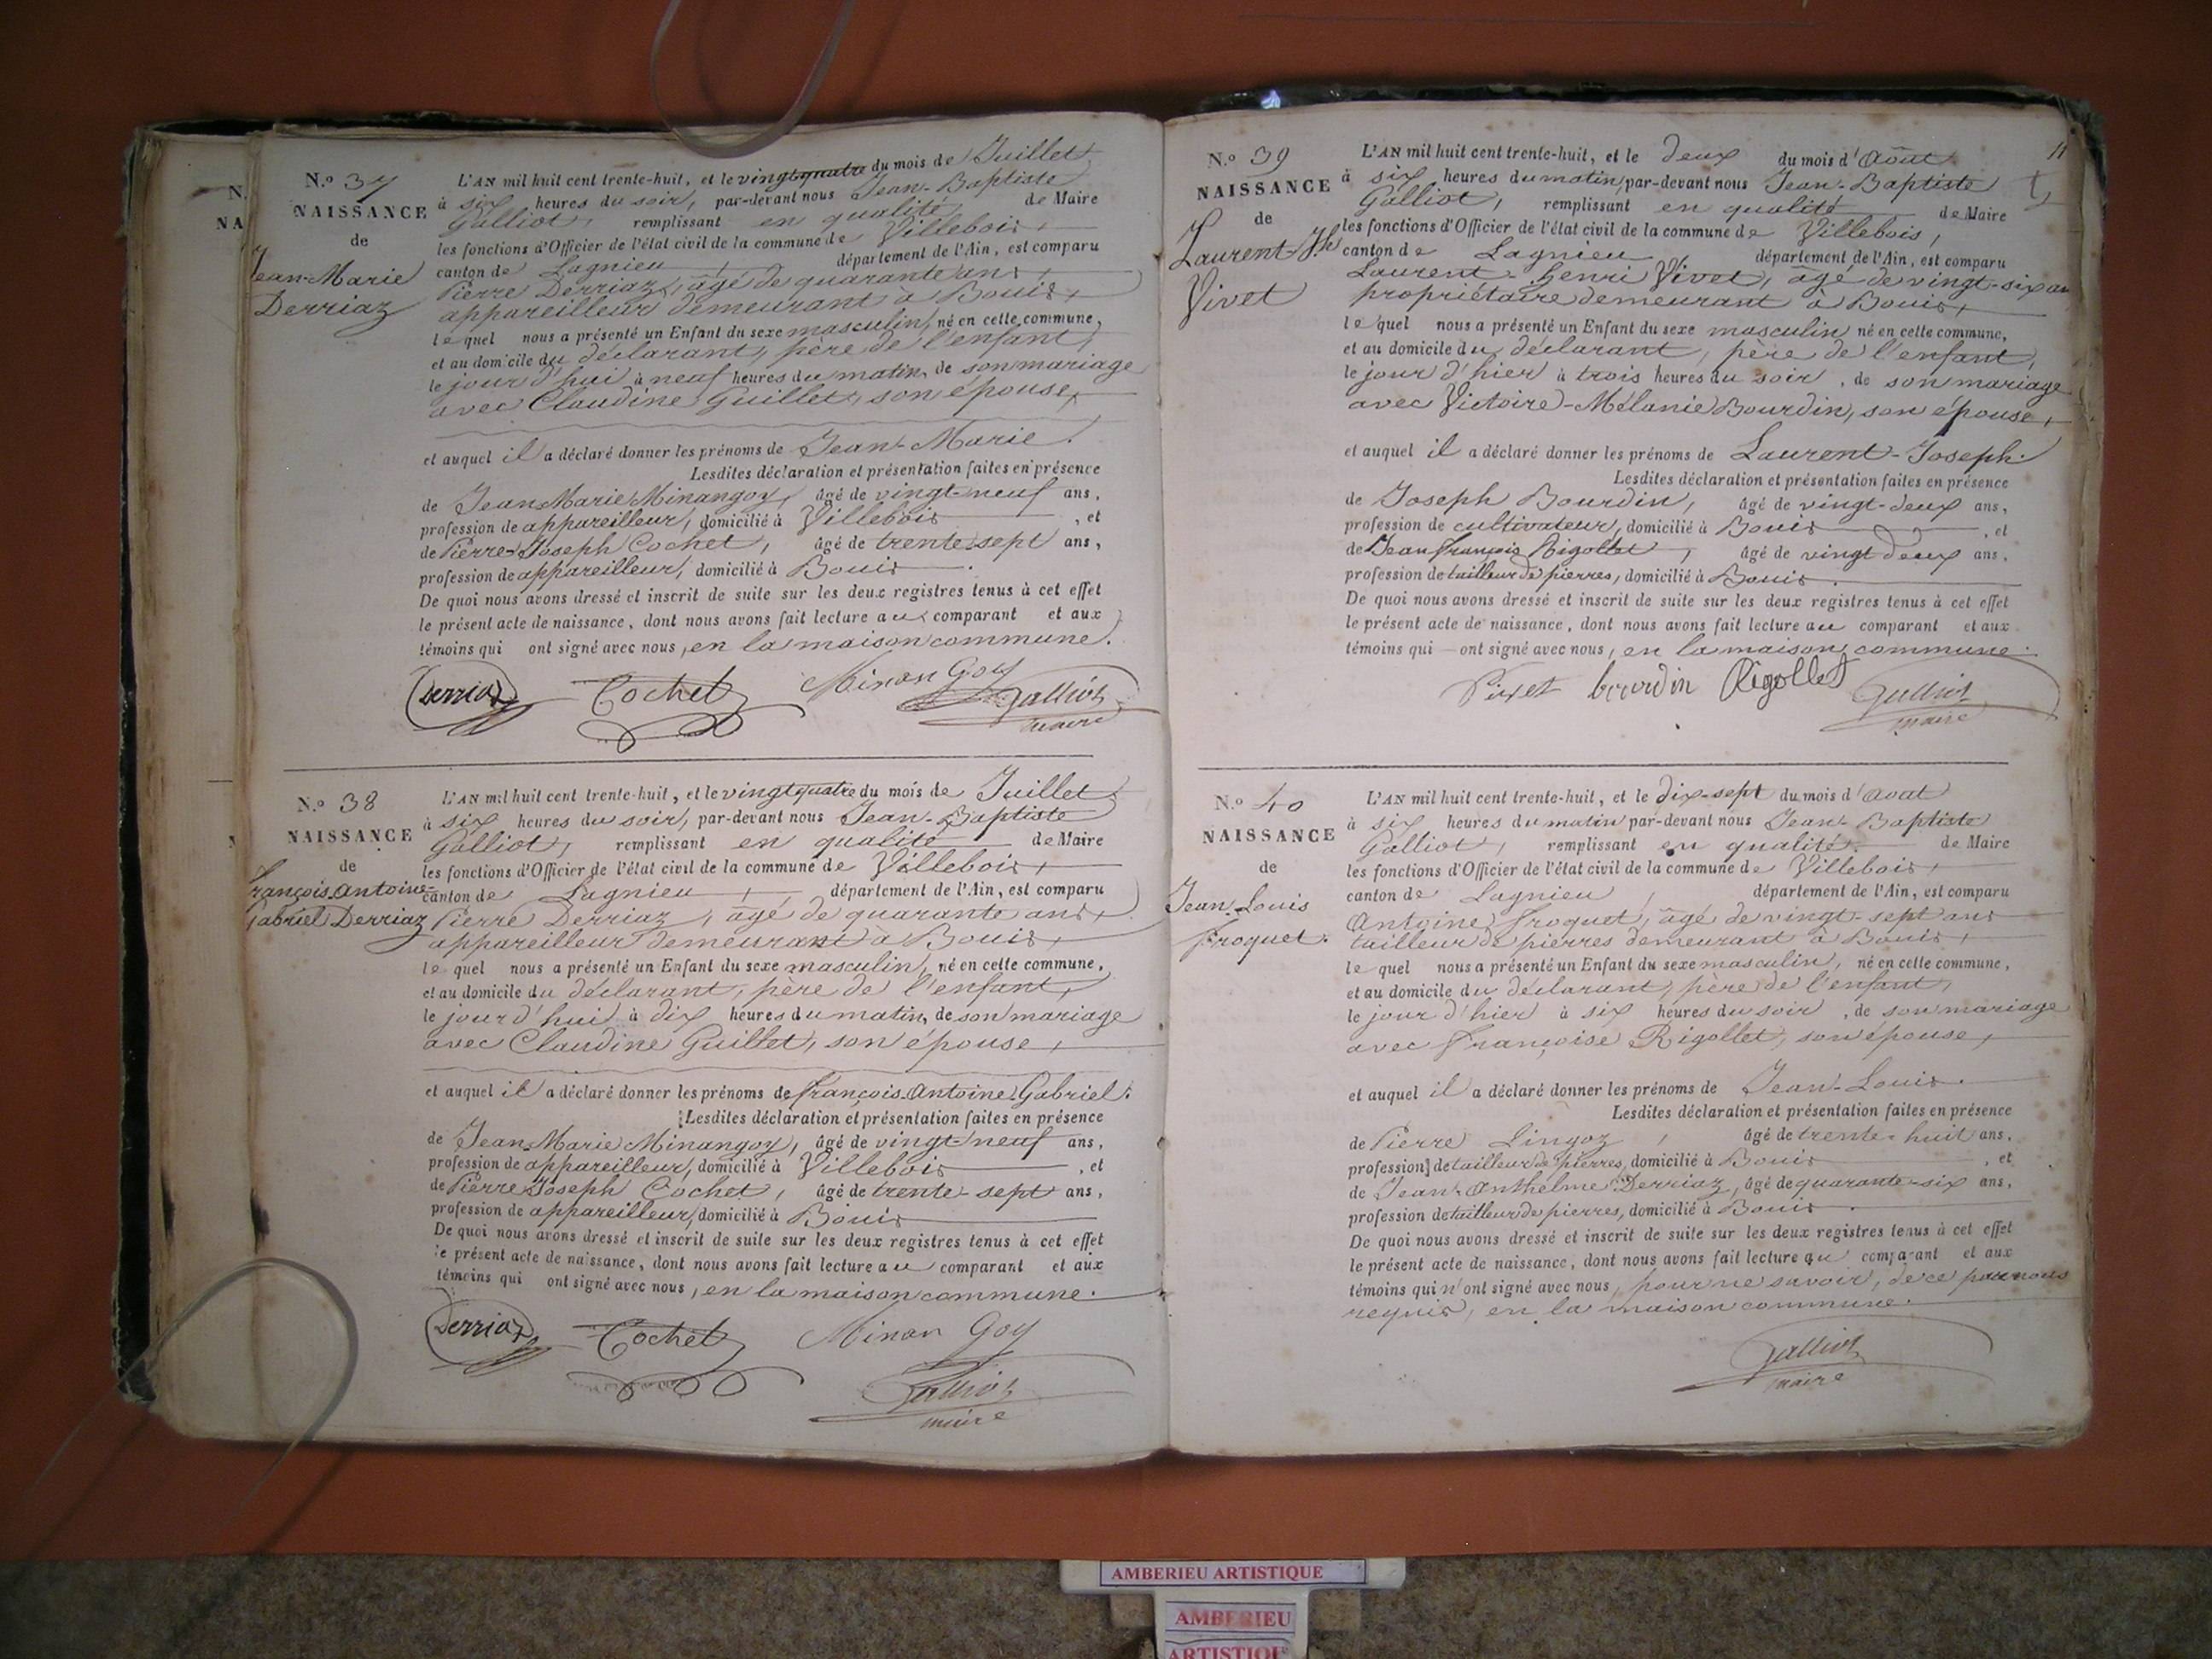 N.
NA
N.º 37
NAISSANCE
de
Jean-Marie
Derriaz
L'AN mil huit cent trente-huit, et le vingtquatre du mois de Juillet
à six heures du soir, par-devant nous Jean-Baptiste
Galliot, remplissant en qualité de Maire
les fonctions d'Officier de l'état civil de la commune de Villebois,
canton de Lagnieu, département de l'Ain, est comparu
Pierre Derriaz, âgé de quarante ans,
appareilleur demeurant à Bouis,
lequel nous a présenté un Enfant du sexe masculin, né en cette commune,
et au domicile du déclarant, père de l'enfant,
le jour d'hui à neuf heures du matin, de son mariage
avec Claudine Guillet, son épouse,
et auquel il a déclaré donner les prénoms de Jean-Marie.
Lesdites déclaration et présentation faites en présence
de Jean-Marie Minangoy, âgé de vingt-neuf ans,
profession de appareilleur, domicilié à Villebois, et
de Pierre-Joseph Cochet, âgé de trente-sept ans,
profession de appareilleur, domicilié à Bouis.
De quoi nous avons dressé et inscrit de suite sur les deux registres tenus à cet effet
le présent acte de naissance, dont nous avons fait lecture aux comparant et aux
témoins qui ont signé avec nous, en la maison commune.
Derriaz Cochet Minan Goy Galliot
maire
N.º 38
NAISSANCE
de
François-Antoine-
Gabriel Derriaz
L'AN mil huit cent trente-huit, et le vingtquatre du mois de Juillet
à six heures du soir, par-devant nous Jean-Baptiste
Galliot, remplissant en qualité de Maire
les fonctions d'Officier de l'état civil de la commune de Villebois,
canton de Lagnieu, département de l'Ain, est comparu
Pierre Derriaz, âgé de quarante ans,
appareilleur demeurant à Bouis,
lequel nous a présenté un Enfant du sexe masculin, né en cette commune,
et au domicile du déclarant, père de l'enfant,
le jour d'hui à dix heures du matin, de son mariage
avec Claudine Guillet, son épouse,
et auquel il a déclaré donner les prénoms de François-Antoine-Gabriel.
Lesdites déclaration et présentation faites en présence
de Jean-Marie Minangoy, âgé de vingt-neuf ans,
profession de appareilleur, domicilié à Villebois, et
de Pierre-Joseph Cochet, âgé de trente-sept ans,
profession de appareilleur, domicilié à Bouis
De quoi nous avons dressé et inscrit de suite sur les deux registres tenus à cet effet
le présent acte de naissance, dont nous avons fait lecture au comparant et aux
témoins qui ont signé avec nous, en la maison commune.
Derriaz Cochet Minan Goy
Galliot
maire
11
N.º 39
NAISSANCE
de
Laurent-Jh
Vivet
L'AN mil huit cent trente-huit, et le deux du mois d'Août
à six heures du matin, par-devant nous Jean-Baptiste
Galliot, remplissant en qualité de Maire
les fonctions d'Officier de l'état civil de la commune de Villebois,
canton de Lagnieu, département de l'Ain, est comparu
Laurent-henri Vivet, âgé de vingt-six ans
propriétaire demeurant à Bouis,
lequel nous a présenté un Enfant du sexe masculin né en cette commune,
et au domicile du déclarant, père de l'enfant,
le jour d'hier à trois heures du soir, de son mariage
avec Victoire-Mélanie Bourdin, son épouse,
et auquel il a déclaré donner les prénoms de Laurent-Joseph.
Lesdites déclaration et présentation faites en présence
de Joseph Bourdin, âgé de vingt-deux ans,
profession de cultivateur, domicilié à Bouis, et
de Jean François Rigollet, âgé de vingt deux ans,
profession de tailleur de pierres, domicilié à Bouis.
De quoi nous avons dressé et inscrit de suite sur les deux registres tenus à cet effet
le présent acte de naissance, dont nous avons fait lecture au comparant et aux
témoins qui ont signé avec nous, en la maison commune.
Vivet bourdin Rigollet Galliot
maire
N.º 40
NAISSANCE
de
Jean-Louis
froquet.
L'AN mil huit cent trente-huit, et le dix-sept du mois d'Août
à six heures du matin par-devant nous Jean-Baptiste
Galliot, remplissant en qualité de Maire
les fonctions d'Officier de l'état civil de la commune de Villebois,
canton de Lagnieu, département de l'Ain, est comparu
Antoine froquet, âgé de vingt-sept ans
tailleur de pierres demeurant à Bouis,
lequel nous a présenté un Enfant du sexe masculin, né en cette commune,
et au domicile du déclarant, père de l'enfant,
le jour d'hier à six heures du soir, de son mariage
avec françoise Rigollet, son épouse,
et auquel il a déclaré donner les prénoms de Jean-Louis.
Lesdites déclaration et présentation faites en présence
de Pierre Lingoz, âgé de trente-huit ans,
profession de tailleur de pierres, domicilié à Bouis, et
de Jean-Anthelme Derriaz, âgé de quarante-six ans,
profession de tailleur de pierres, domicilié à Bouis.
De quoi nous avons dressé et inscrit de suite sur les deux registres tenus à cet effet
le présent acte de naissance, dont nous avons fait lecture au comparant et aux
témoins qui n'ont signé avec nous, pour ne savoir, de ce par nous
requis, en la maison commune.
Galliot
maire
AMBERIEU ARTISTIQUE
AMBERIEU
ARTISTIQUE